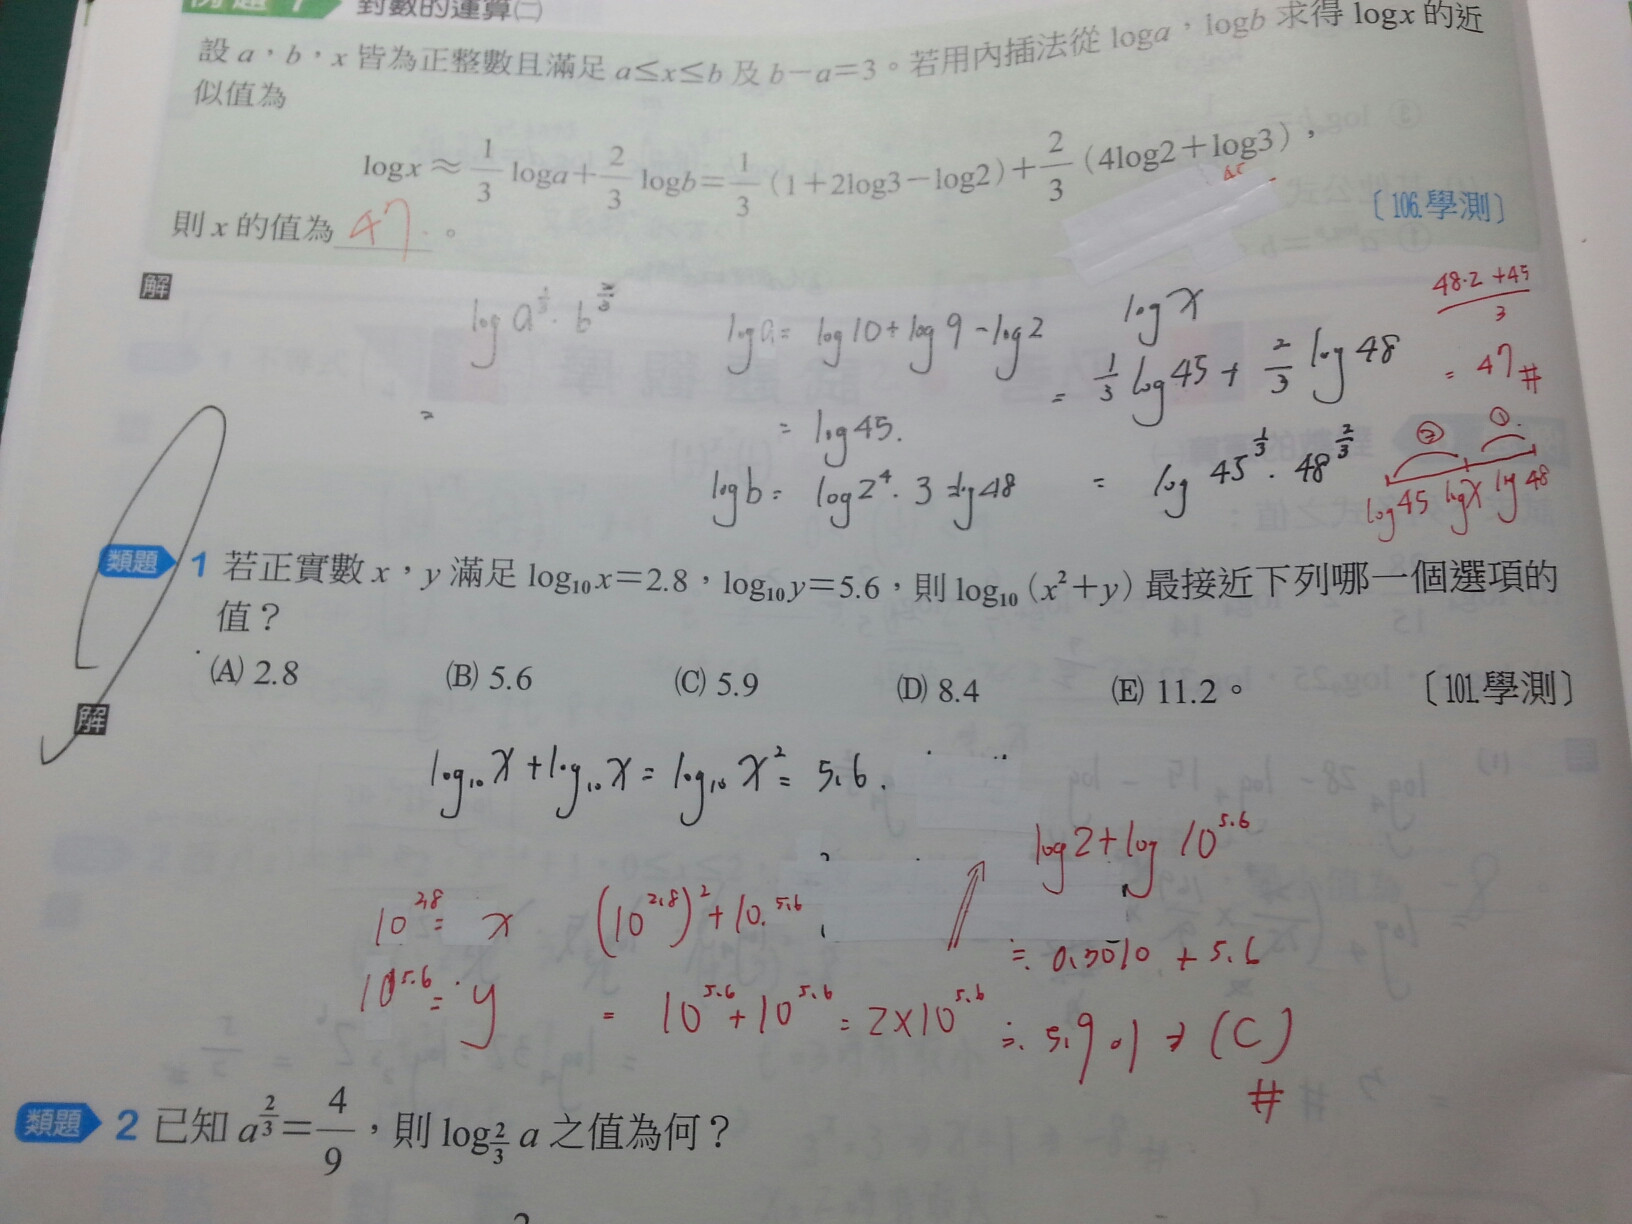 對數的運算㈡
設 a，b，x 皆為正整數且滿足 a≤x≤b 及 b−a=3。若用內插法從 loga，logb 求得 logx 的近
似值為
logx ≈ 1/3 loga + 2/3 logb = 1/3 (1+2log3−log2) + 2/3 (4log2+log3)，
則 x 的值為 47。
〔106.學測〕
解
log a^{1/3} · b^{2/3}
loga = log10 + log9 − log2
= log45.
logb = log2⁴·3 = log48
logx
= 1/3 log45 + 2/3 log48
= log 45^{1/3} · 48^{2/3}
48·2+45
3
= 47 #
② ①
log45 logx log48
類題 1 若正實數 x，y 滿足 log₁₀x=2.8，log₁₀y=5.6，則 log₁₀(x²+y) 最接近下列哪一個選項的
值？
(A) 2.8 (B) 5.6 (C) 5.9 (D) 8.4 (E) 11.2。 〔101.學測〕
解
log₁₀x + log₁₀x = log₁₀x² = 5.6.
10^{2.8} = x
10^{5.6} = y
(10^{2.8})² + 10^{5.6}
= 10^{5.6} + 10^{5.6} = 2×10^{5.6}
log2 + log10^{5.6}
≒ 0.3010 + 5.6
≒ 5.901 ⇒ (C)
#
類題 2 已知 a^{2/3} = 4/9，則 log_{2/3} a 之值為何？